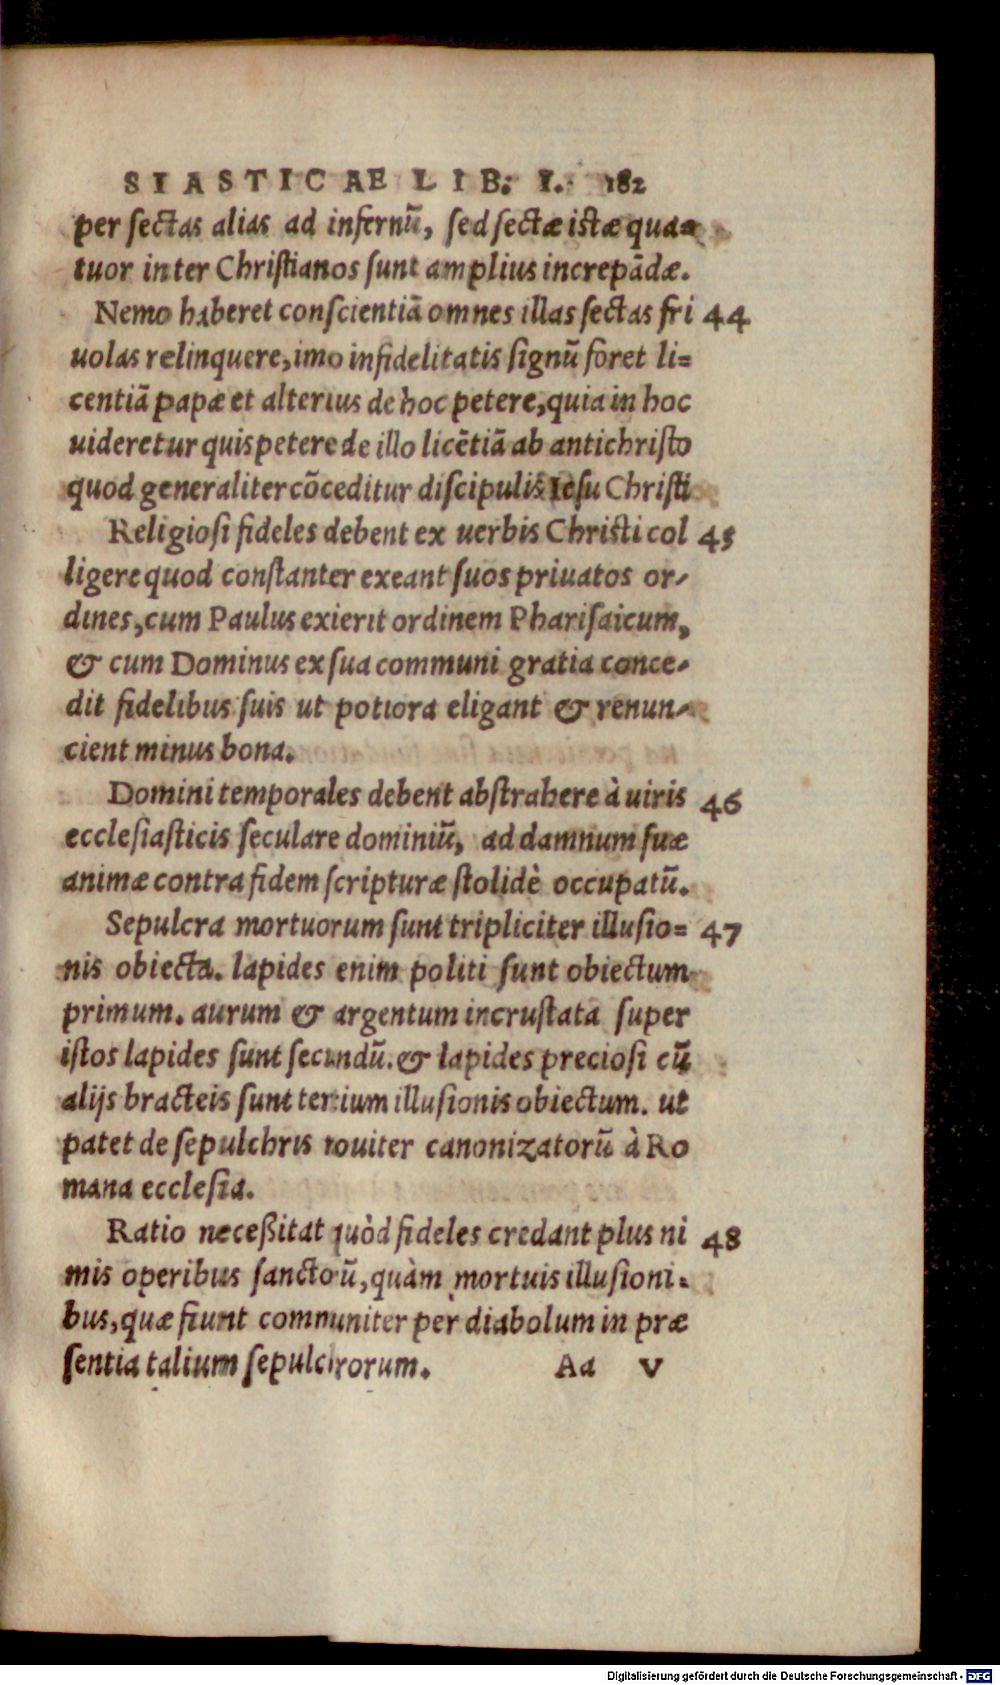 SIASTICAE LIB. I. 182
per sectas alias ad infernũ, sed sectæ istæ qua=
tuor inter Christianos sunt amplius increpãdæ.
Nemo haberet conscientiã omnes illas sectas fri 44
uolas relinquere, imo infidelitatis signũ foret li=
centiã papæ et alterius de hoc petere, quia in hoc
uideretur quis petere de illo licẽtiã ab antichristo
quod generaliter cõceditur discipulis Iesu Christi
Religiosi fideles debent ex uerbis Christi col 45
ligere quod constanter exeant suos priuatos or-
dines, cum Paulus exierit ordinem Pharisaicum,
& cum Dominus ex sua communi gratia conce-
dit fidelibus suis ut potiora eligant & renun-
cient minus bona.
Domini temporales debent abstrahere à uiris 46
ecclesiasticis seculare dominiũ, ad damnum suæ
animæ contra fidem scripturæ stolidè occupatũ.
Sepulcra mortuorum sunt tripliciter illusio= 47
nis obiecta. lapides enim politi sunt obiectum
primum. aurum & argentum incrustata super
istos lapides sunt secundũ. & lapides preciosi cũ
alijs bracteis sunt tertium illusionis obiectum. ut
patet de sepulchris nouiter canonizatorũ à Ro
mana ecclesia.
Ratio necessitat quòd fideles credant plus ni 48
mis operibus sanctorũ, quàm mortuis illusioni=
bus, quæ fiunt communiter per diabolum in præ
sentia talium sepulcrorum. Aa v
Digitalisierung gefördert durch die Deutsche Forschungsgemeinschaft - DFG